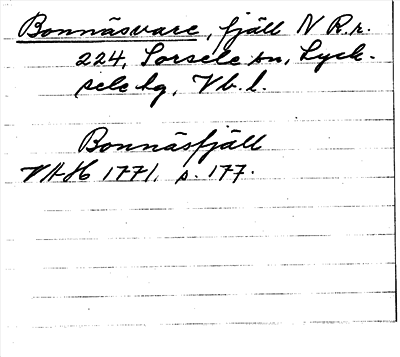 Bonnäsvare, fjäll N R.r.
224, Sorsele sn, Lyck-
sele lg, Vb. l.
Bonnäsfjäll
VAH 1771, s. 177.